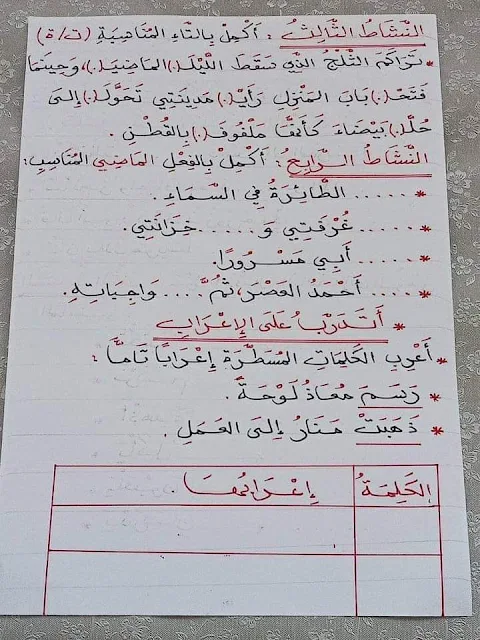 النَّشَاطُ الثَّالِثُ : أَكْمِلْ بِالتَّاءِ المُنَاسِبَةِ (ت/ة)
* تَرَاكَمَ الثَّلْجُ الَّذِي سَقَطَ اللَّيْلَ(.) المَاضِيَ(.)، وَحِينَمَا
فَتَحْ(.) بَابَ المَنْزِلِ رَأَيْ(.) مَدِينَتِي تَحَوَّلَ(.) إِلَى
حُلَّ(.) بَيْضَاءَ كَأَنَّهَا مَلْفُوفَ(.) بِالقُطْنِ.
النَّشَاطُ الرَّابِعُ : أَكْمِلْ بِالفِعْلِ المَاضِي المُنَاسِبِ:
* ..... الطَّائِرَةُ فِي السَّمَاءِ.
* ..... غُرْفَتِي وَ ..... خِزَانَتِي.
* ..... أَبِي مَسْرُورًا.
* .... أَحْمَدُ العَصْرَ، ثُمَّ .... وَاجِبَاتِهِ.
* أَتَدَرَّبُ عَلَى الإِعْرَابِ
* أَعْرِبِ الكَلِمَاتِ المُسَطَّرَةِ إِعْرَابًا تَامًّا :
* رَسَمَ مُعَاذُ لَوْحَةً.
* ذَهَبَتْ مَنَارُ إِلَى العَمَلِ.
الكَلِمَةُ إِعْرَابُهَا.